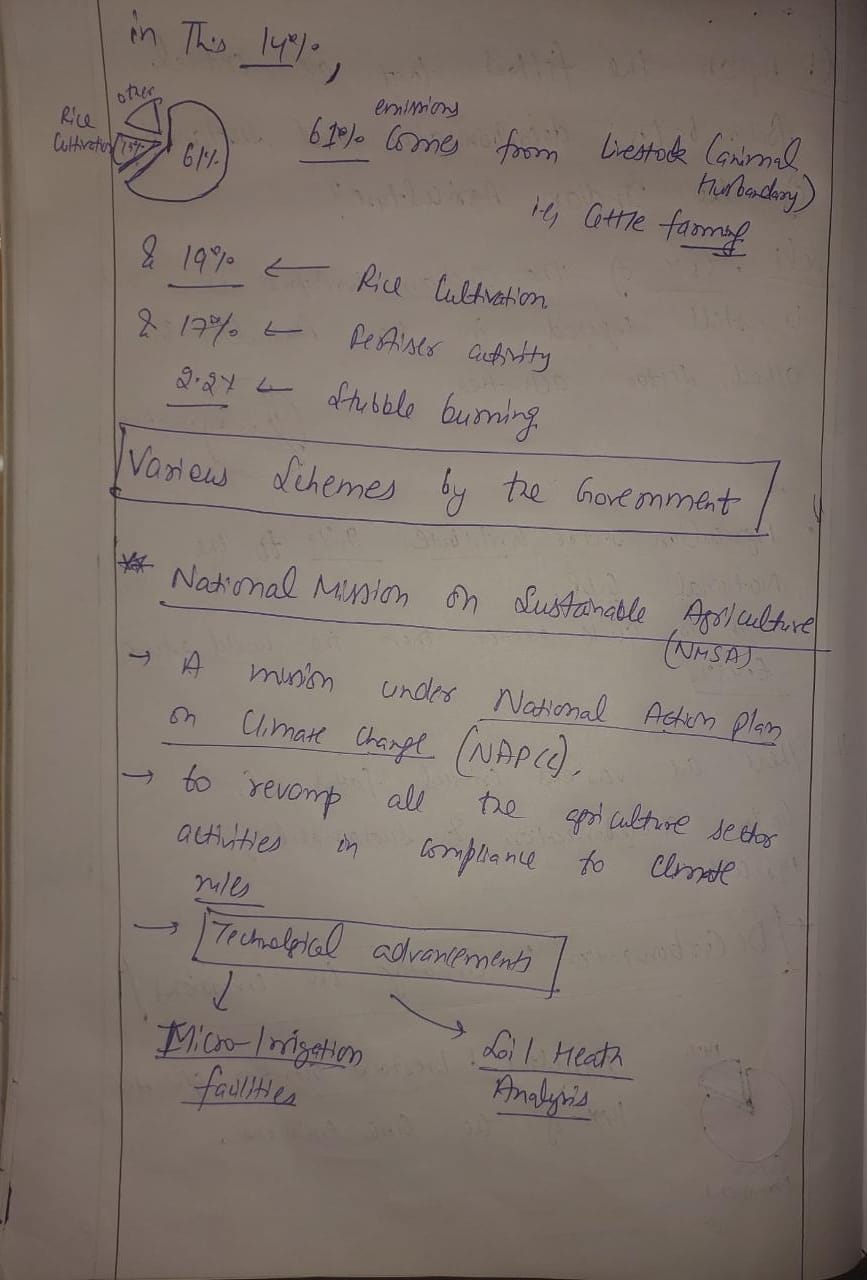 in This 14%,
other
Rice
Cultivation
61%
emissions
61% Comes from livestock (animal
Husbandary)
ie, Cattle farming
& 19% ← Rice Cultivation
& 17% ← Fertiser activity
2.2% ← Stubble burning
Various Schemes by the Government
** National Mission on Sustainable Agriculture
(NMSA)
→ A mission under National Action plan
on Climate Change (NAPCC),
→ to revamp all the agriculture sector
activities in compliance to Climate
rules
→ Technolgical advancements
↓
Micro-Irrigation
facilities
Soil Heath
Analysis